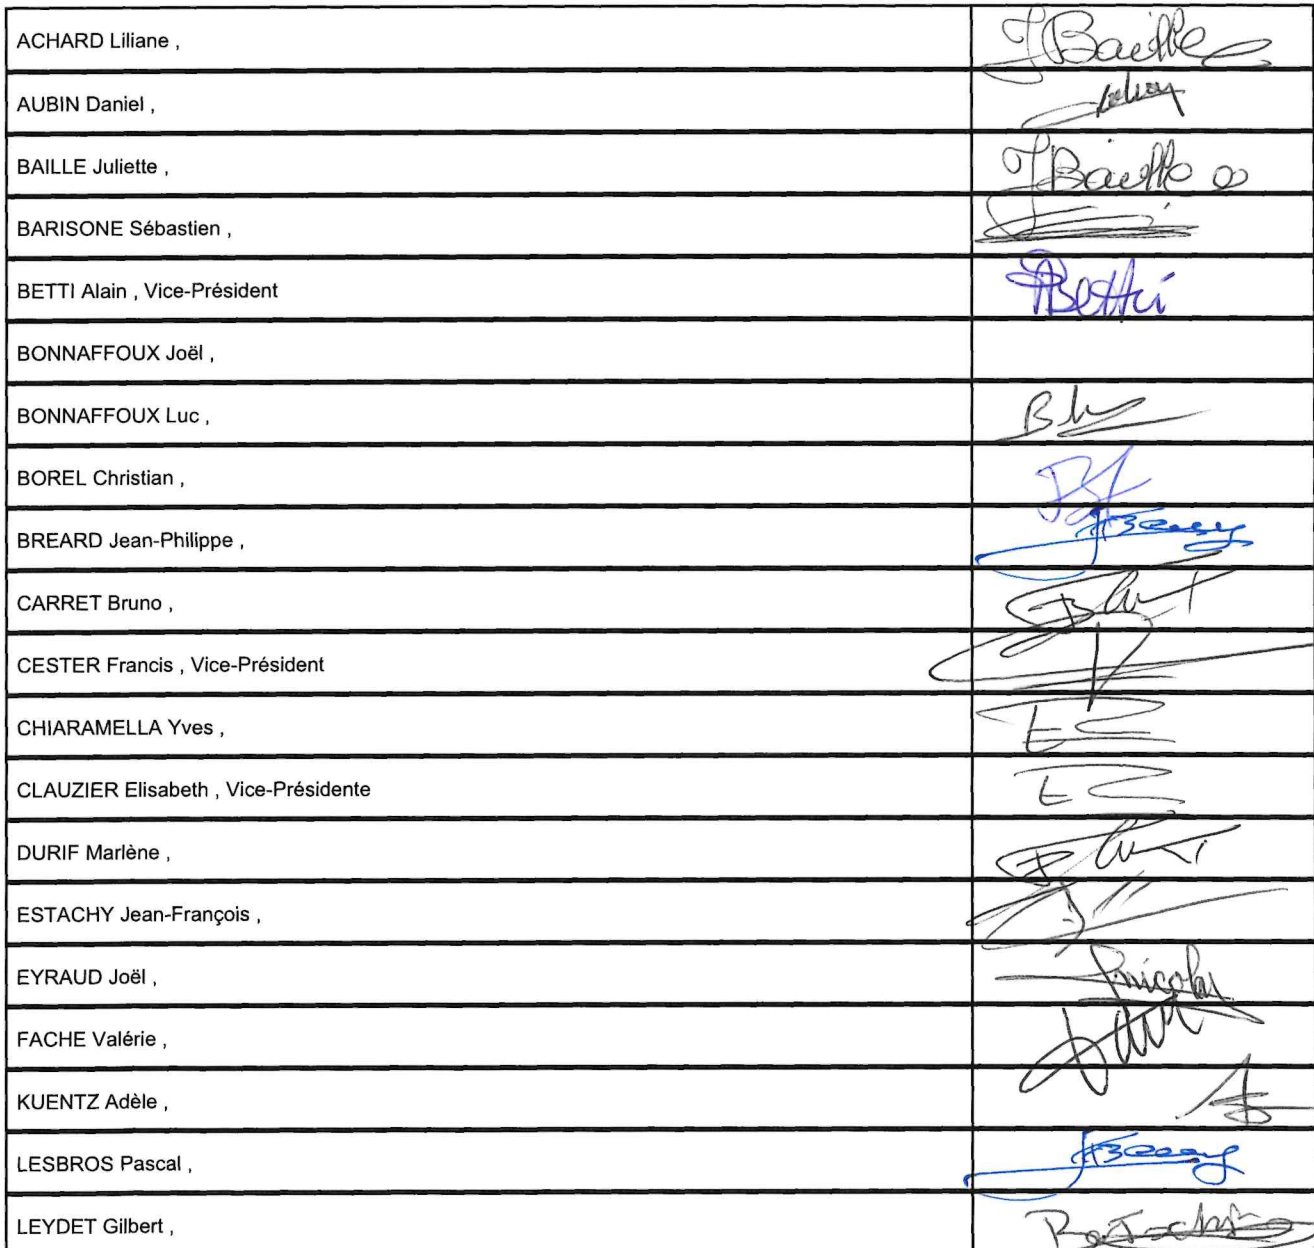 ACHARD Liliane , JBaille
AUBIN Daniel ,
BAILLE Juliette , JBaille
BARISONE Sébastien ,
BETTI Alain , Vice-Président ABetti
BONNAFFOUX Joël ,
BONNAFFOUX Luc ,
BOREL Christian ,
BREARD Jean-Philippe ,
CARRET Bruno ,
CESTER Francis , Vice-Président
CHIARAMELLA Yves , EC
CLAUZIER Elisabeth , Vice-Présidente EC
DURIF Marlène ,
ESTACHY Jean-François ,
EYRAUD Joël ,
FACHE Valérie ,
KUENTZ Adèle ,
LESBROS Pascal ,
LEYDET Gilbert ,